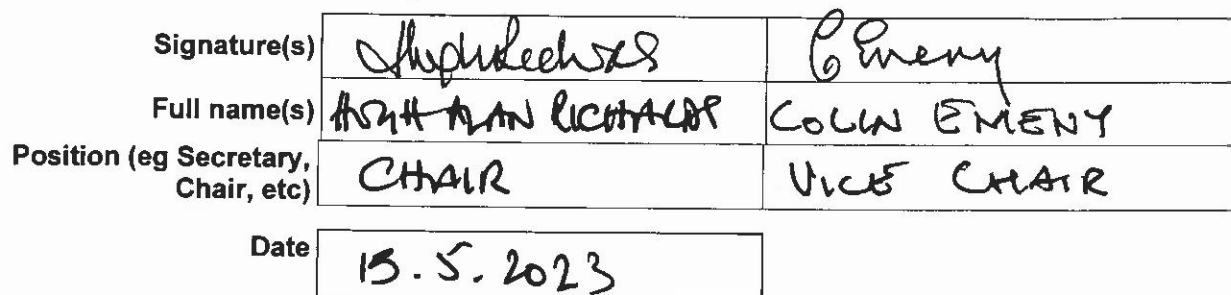 Signature(s) C Emeny
Full name(s) HUGH ALAN RICHARDS COLIN EMENY
Position (eg Secretary,
Chair, etc) CHAIR VICE CHAIR
Date 15.5.2023